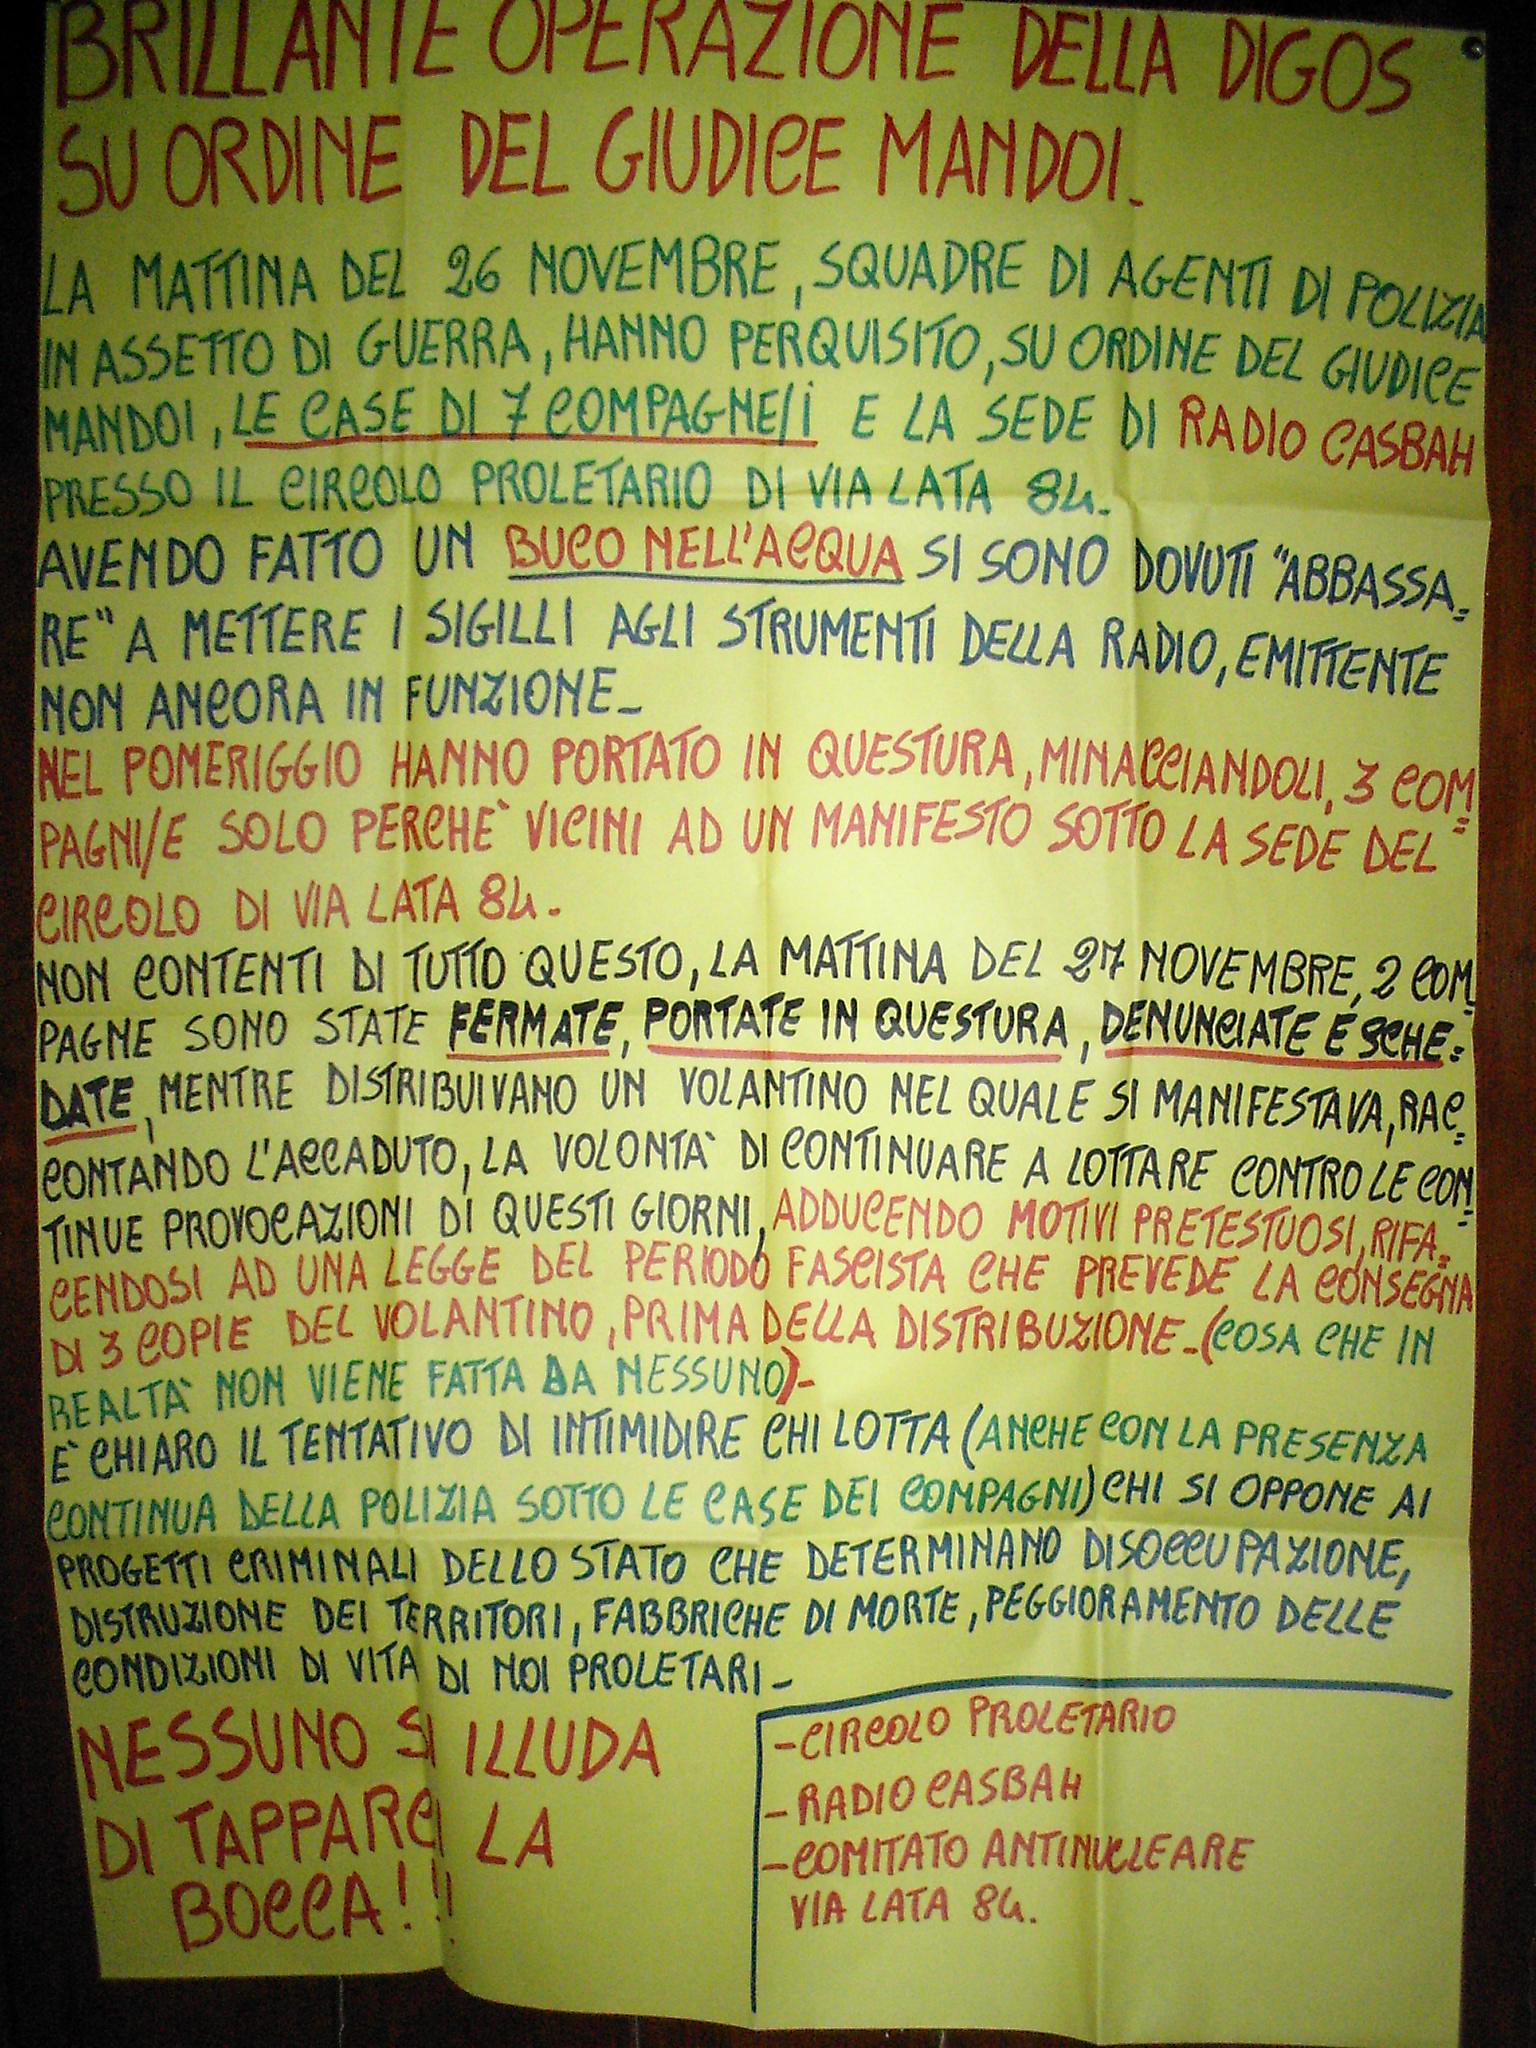 BRILLANTE OPERAZIONE DELLA DIGOS
SU ORDINE DEL GIUDICE MANDOI.
LA MATTINA DEL 26 NOVEMBRE, SQUADRE DI AGENTI DI POLIZIA
IN ASSETTO DI GUERRA, HANNO PERQUISITO, SU ORDINE DEL GIUDICE
MANDOI, LE CASE DI 7 COMPAGNE/i E LA SEDE DI RADIO CASBAH
PRESSO IL CIRCOLO PROLETARIO DI VIA LATA 84.
AVENDO FATTO UN BUCO NELL'ACQUA SI SONO DOVUTI "ABBASSA=
RE" A METTERE I SIGILLI AGLI STRUMENTI DELLA RADIO, EMITTENTE
NON ANCORA IN FUNZIONE_
NEL POMERIGGIO HANNO PORTATO IN QUESTURA, MINACCIANDOLI, 3 COM=
PAGNI/E SOLO PERCHE' VICINI AD UN MANIFESTO SOTTO LA SEDE DEL
CIRCOLO DI VIA LATA 84.
NON CONTENTI DI TUTTO QUESTO, LA MATTINA DEL 27 NOVEMBRE, 2 COM=
PAGNE SONO STATE FERMATE, PORTATE IN QUESTURA, DENUNCIATE E SCHE=
DATE, MENTRE DISTRIBUIVANO UN VOLANTINO NEL QUALE SI MANIFESTAVA, RAC=
CONTANDO L'ACCADUTO, LA VOLONTA' DI CONTINUARE A LOTTARE CONTRO LE CON=
TINUE PROVOCAZIONI DI QUESTI GIORNI, ADDUCENDO MOTIVI PRETESTUOSI, RIFA=
CENDOSI AD UNA LEGGE DEL PERIODO FASCISTA CHE PREVEDE LA CONSEGNA
DI 3 COPIE DEL VOLANTINO, PRIMA DELLA DISTRIBUZIONE_(COSA CHE IN
REALTA' NON VIENE FATTA DA NESSUNO)-
E' CHIARO IL TENTATIVO DI INTIMIDIRE CHI LOTTA (ANCHE CON LA PRESENZA
CONTINUA DELLA POLIZIA SOTTO LE CASE DEI COMPAGNI) CHI SI OPPONE AI
PROGETTI CRIMINALI DELLO STATO CHE DETERMINANO DISOCCUPAZIONE,
DISTRUZIONE DEI TERRITORI, FABBRICHE DI MORTE, PEGGIORAMENTO DELLE
CONDIZIONI DI VITA DI NOI PROLETARI_
NESSUNO SI ILLUDA
DI TAPPARCI LA
BOCCA!!!
-CIRCOLO PROLETARIO
-RADIO CASBAH
-COMITATO ANTINUCLEARE
VIA LATA 84.